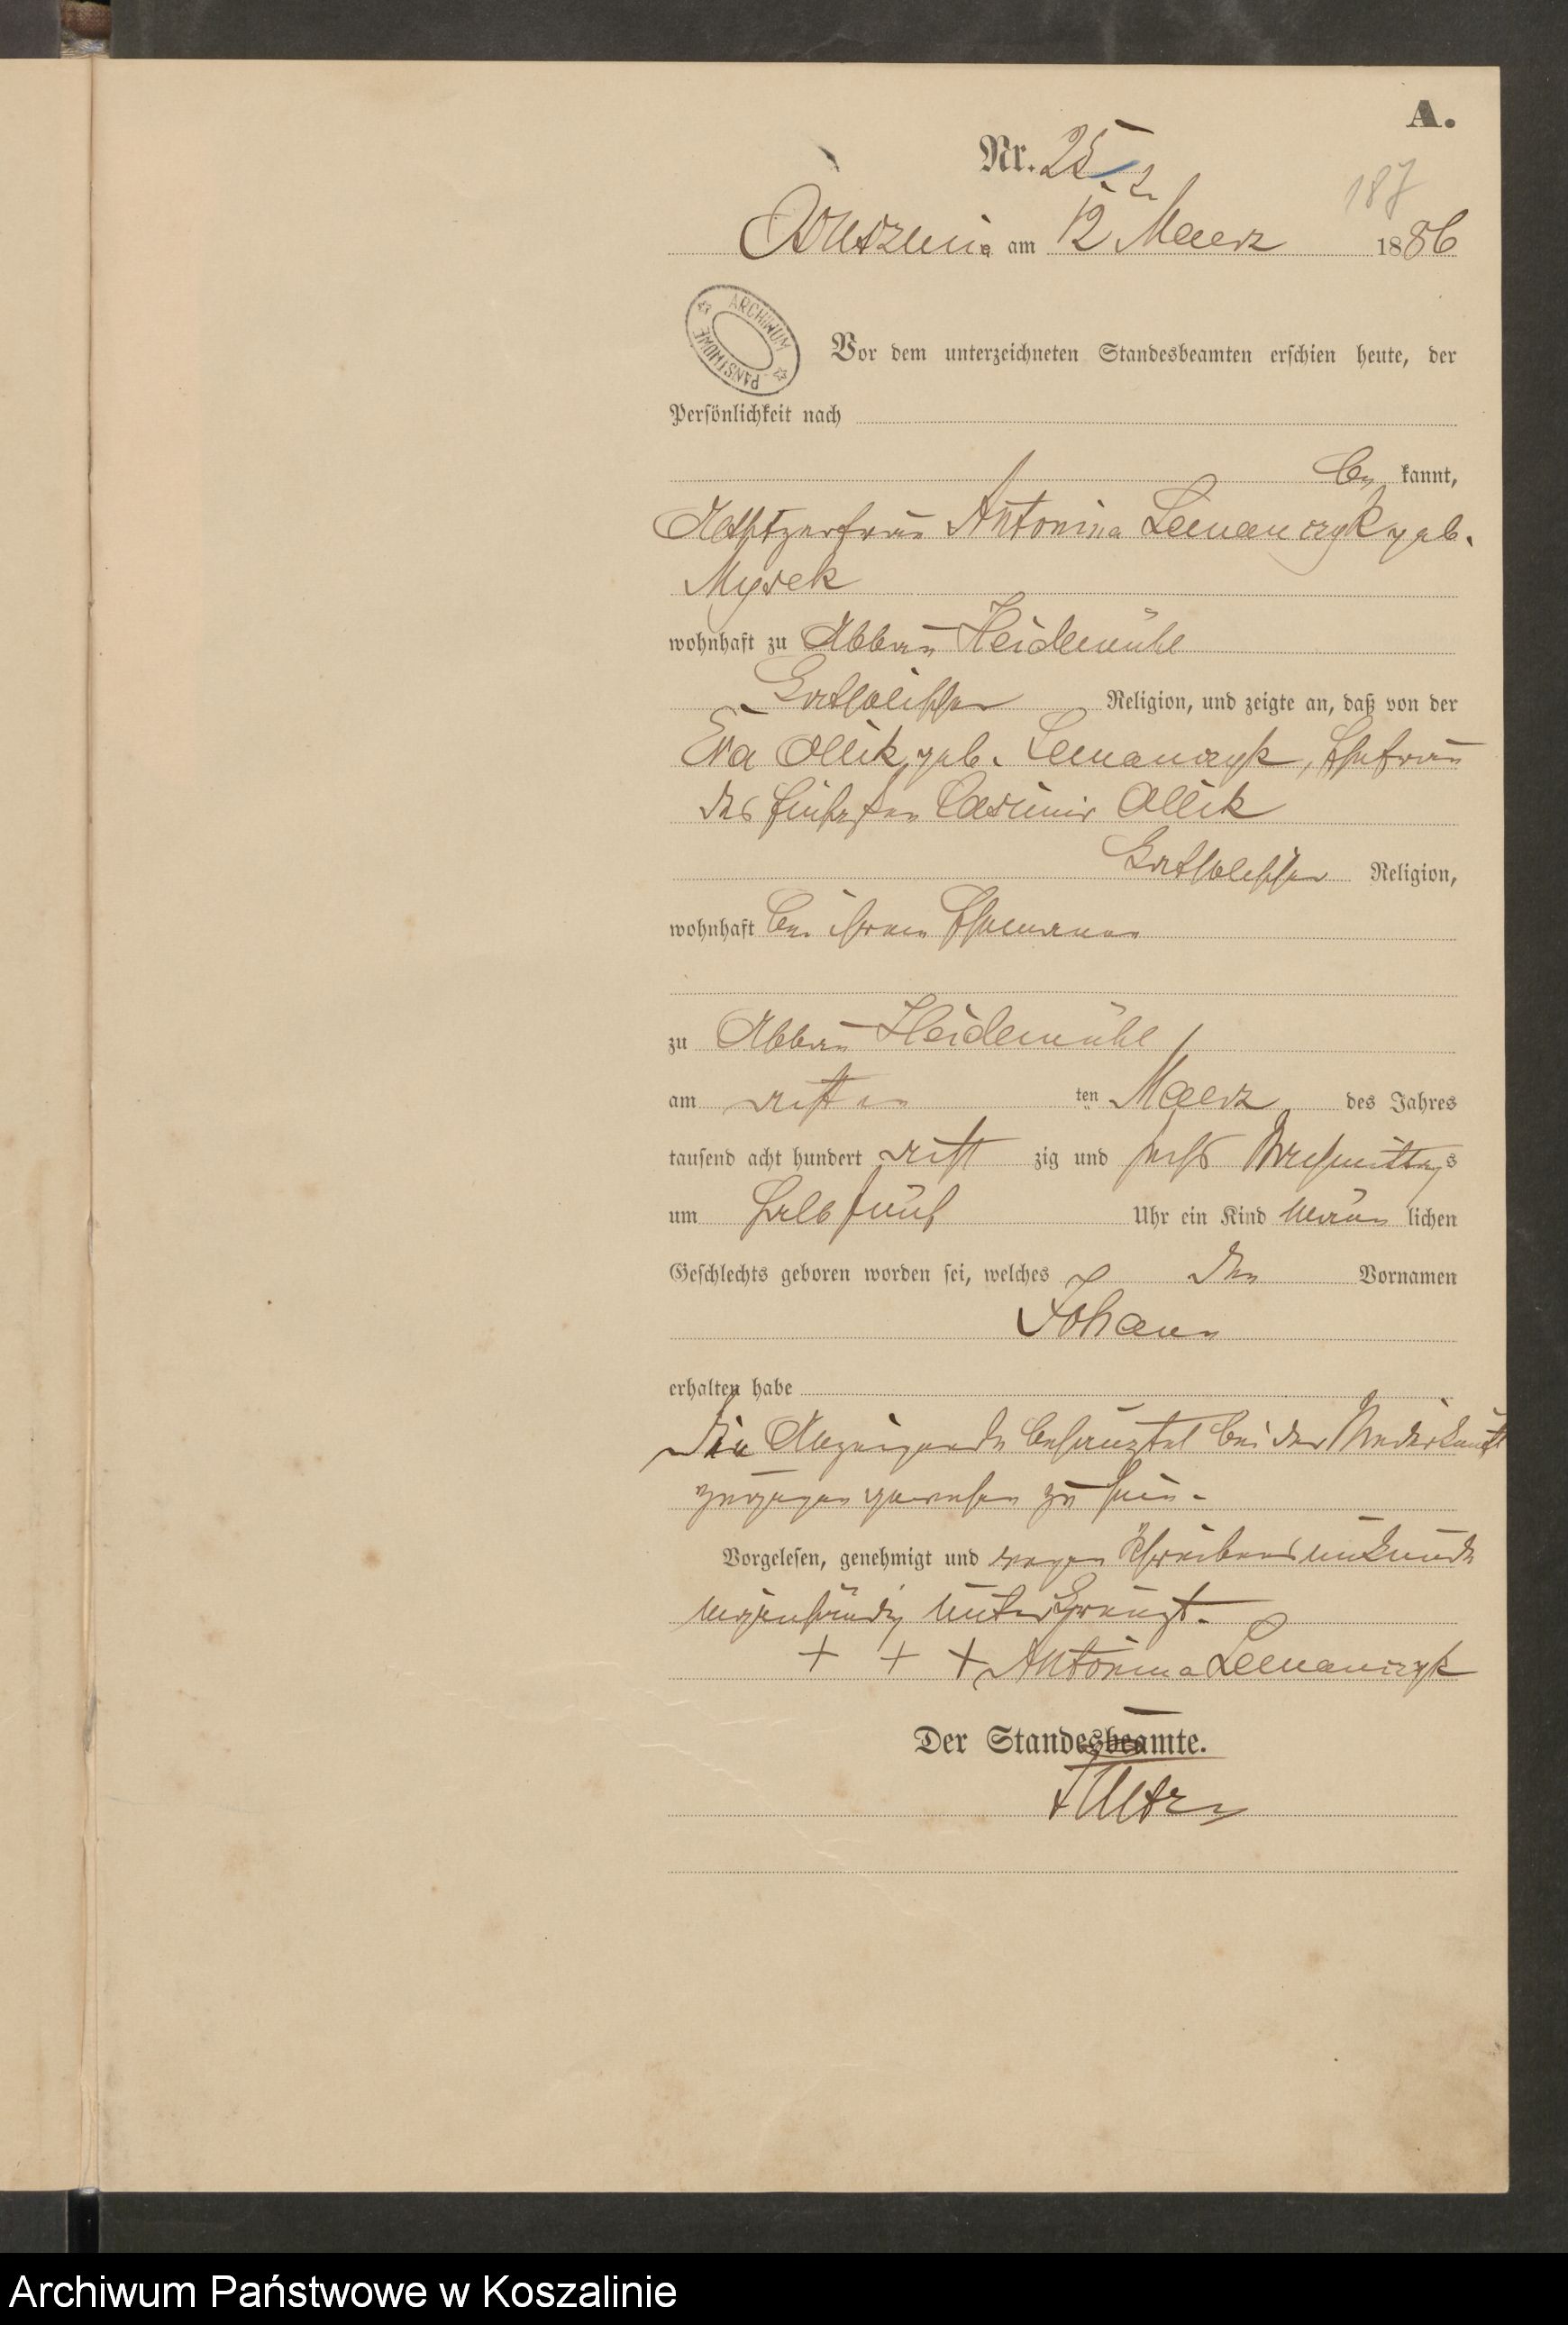 A.
Nr. 25.
187
am 12 Maerz 1886
ARCHIWUM PAŃSTWOWE
Vor dem unterzeichneten Standesbeamten erschien heute, der
Persönlichkeit nach
be kannt,
Antonina Lemanczyk geb.
wohnhaft zu Abbau Heidemühl
katholischer Religion, und zeigte an, daß von der
Eva Ollik, geb. Lemanczyk, Ehefrau
des Casimir Ollik
katholischer Religion,
wohnhaft bei ihrem Ehemann
zu Abbau Heidemühl
am achten ten Maerz des Jahres
tausend acht hundert acht zig und sechs Nachmittags
um halb fünf Uhr ein Kind männ lichen
Geschlechts geboren worden sei, welches den Vornamen
Johann
erhalten habe
Die Anzeigende bei der Niederkunft
zugegen gewesen zu sein.
Vorgelesen, genehmigt und wegen Schreibensunkunde
eigenhändig unterkreuzt.
+ + + Antonina Lemanczyk
Der Standesbeamte.
Archiwum Państwowe w Koszalinie